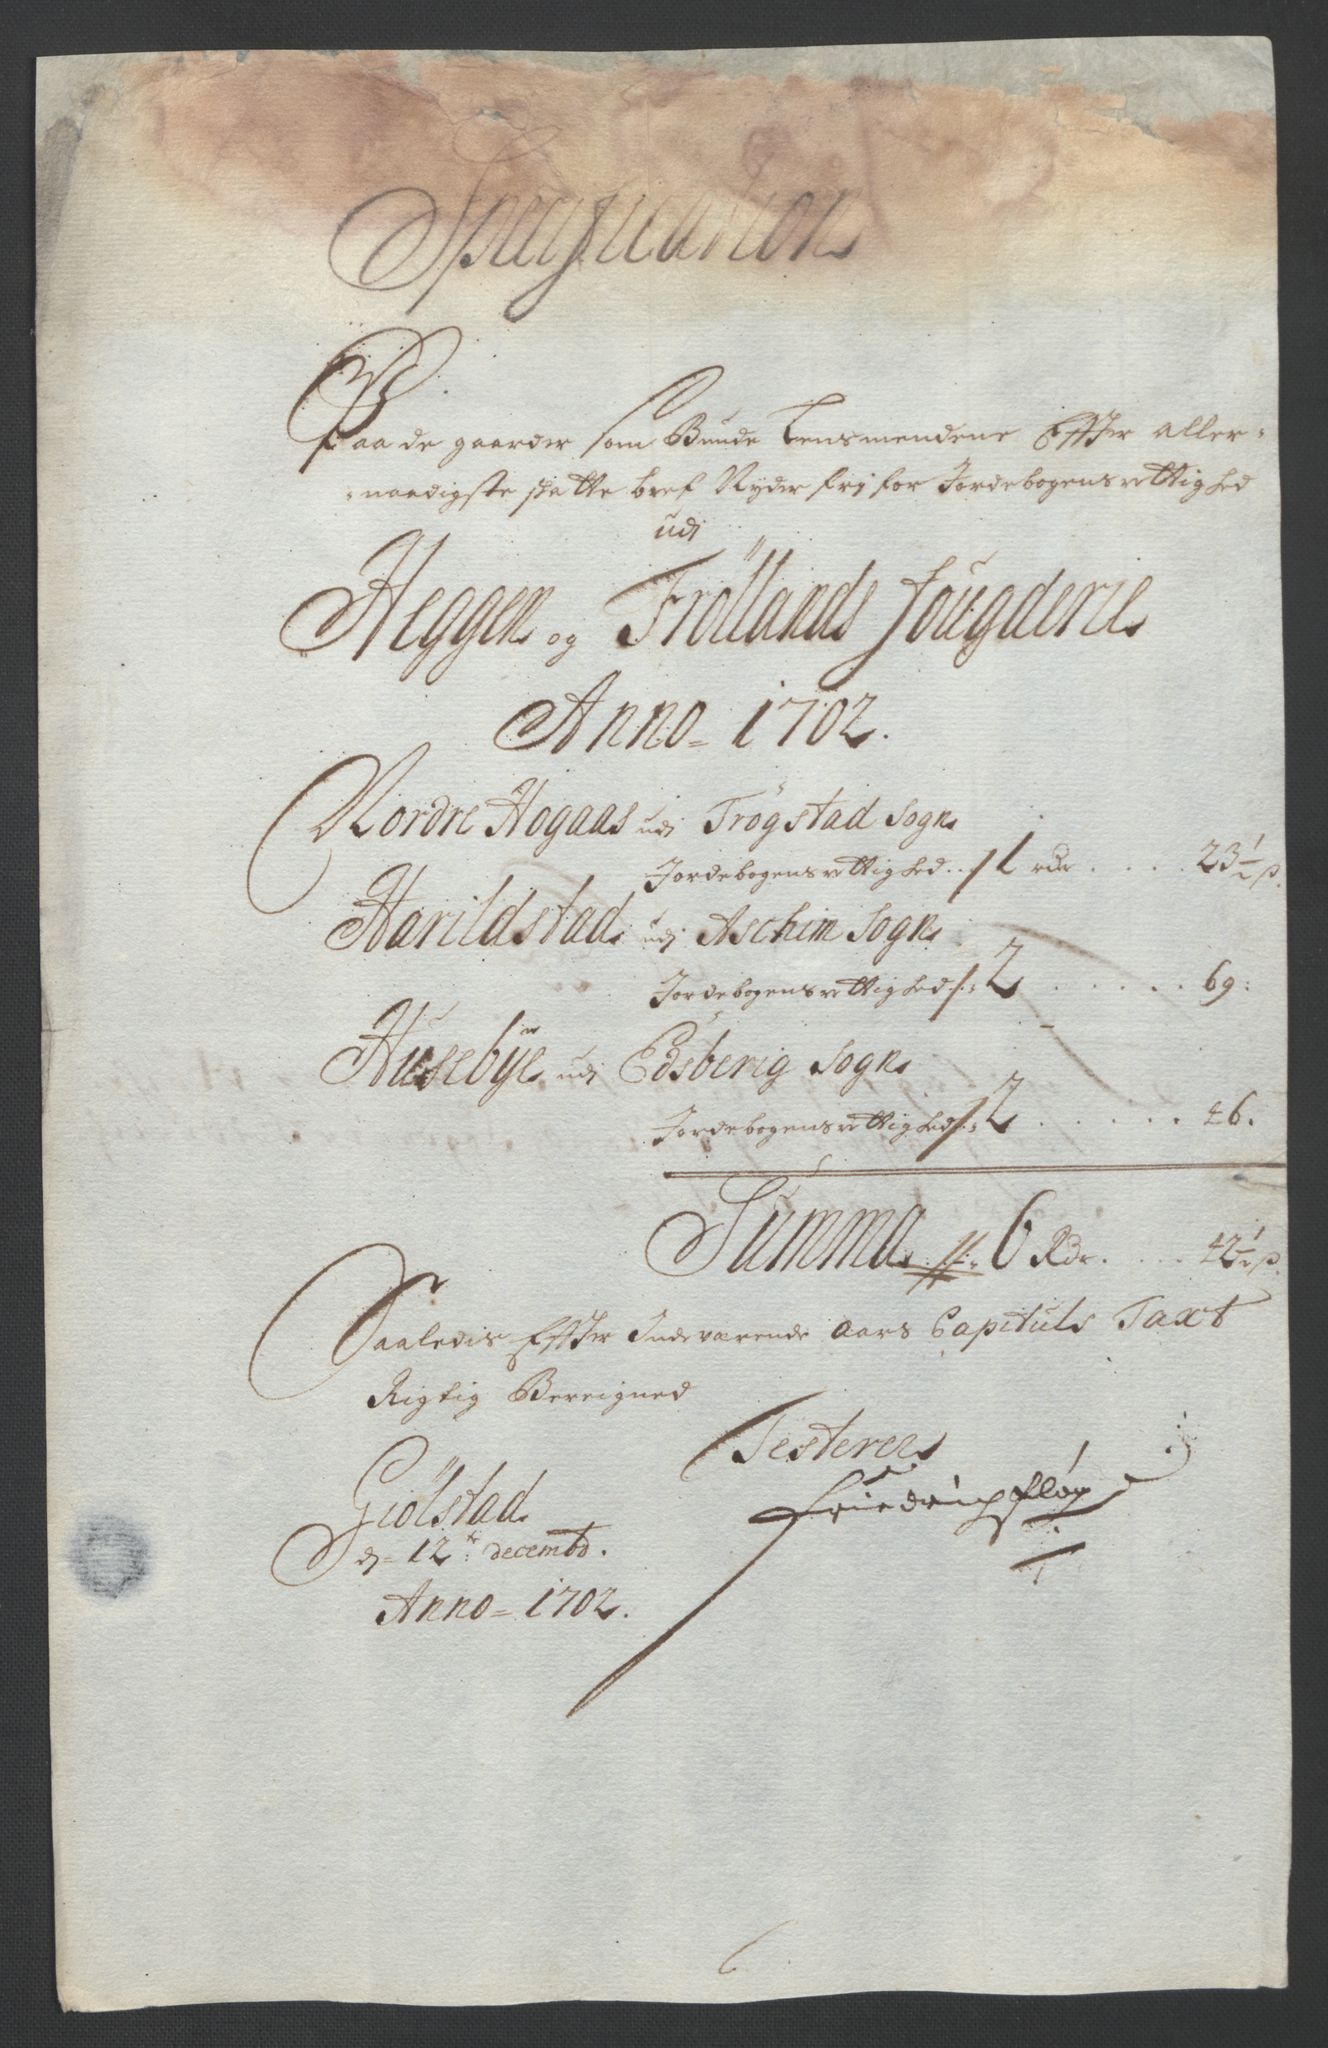 Specification
Paa de gaarder som Bunde Lensmendene Effter aller-
naadigste skatte bref Nyder frj for Jordebogens rettighed
udj
Heggen og Frøllands fougderie
Anno 1702.
Nordre Hogaas udj Trøgstad Sogn
Jordebogens rettighed . . 1 rdr . . . . 23½ s.
Harildstad udj Aschim Sogn
Jordebogens rettighed . 2 . . . . . . 69:
Husebye udj Edsberig Sogn
Jordebogens rettighed . 2 . . . . . . 46.
Summa 6 Rdr. . . . 42½ s.
Saaledis Effter Indeværende aars Capituls Taxt
Rigtig Bereigned
Testerer
Giølstad
Friedrich fløg
dj 12te decembr.
Anno 1702.